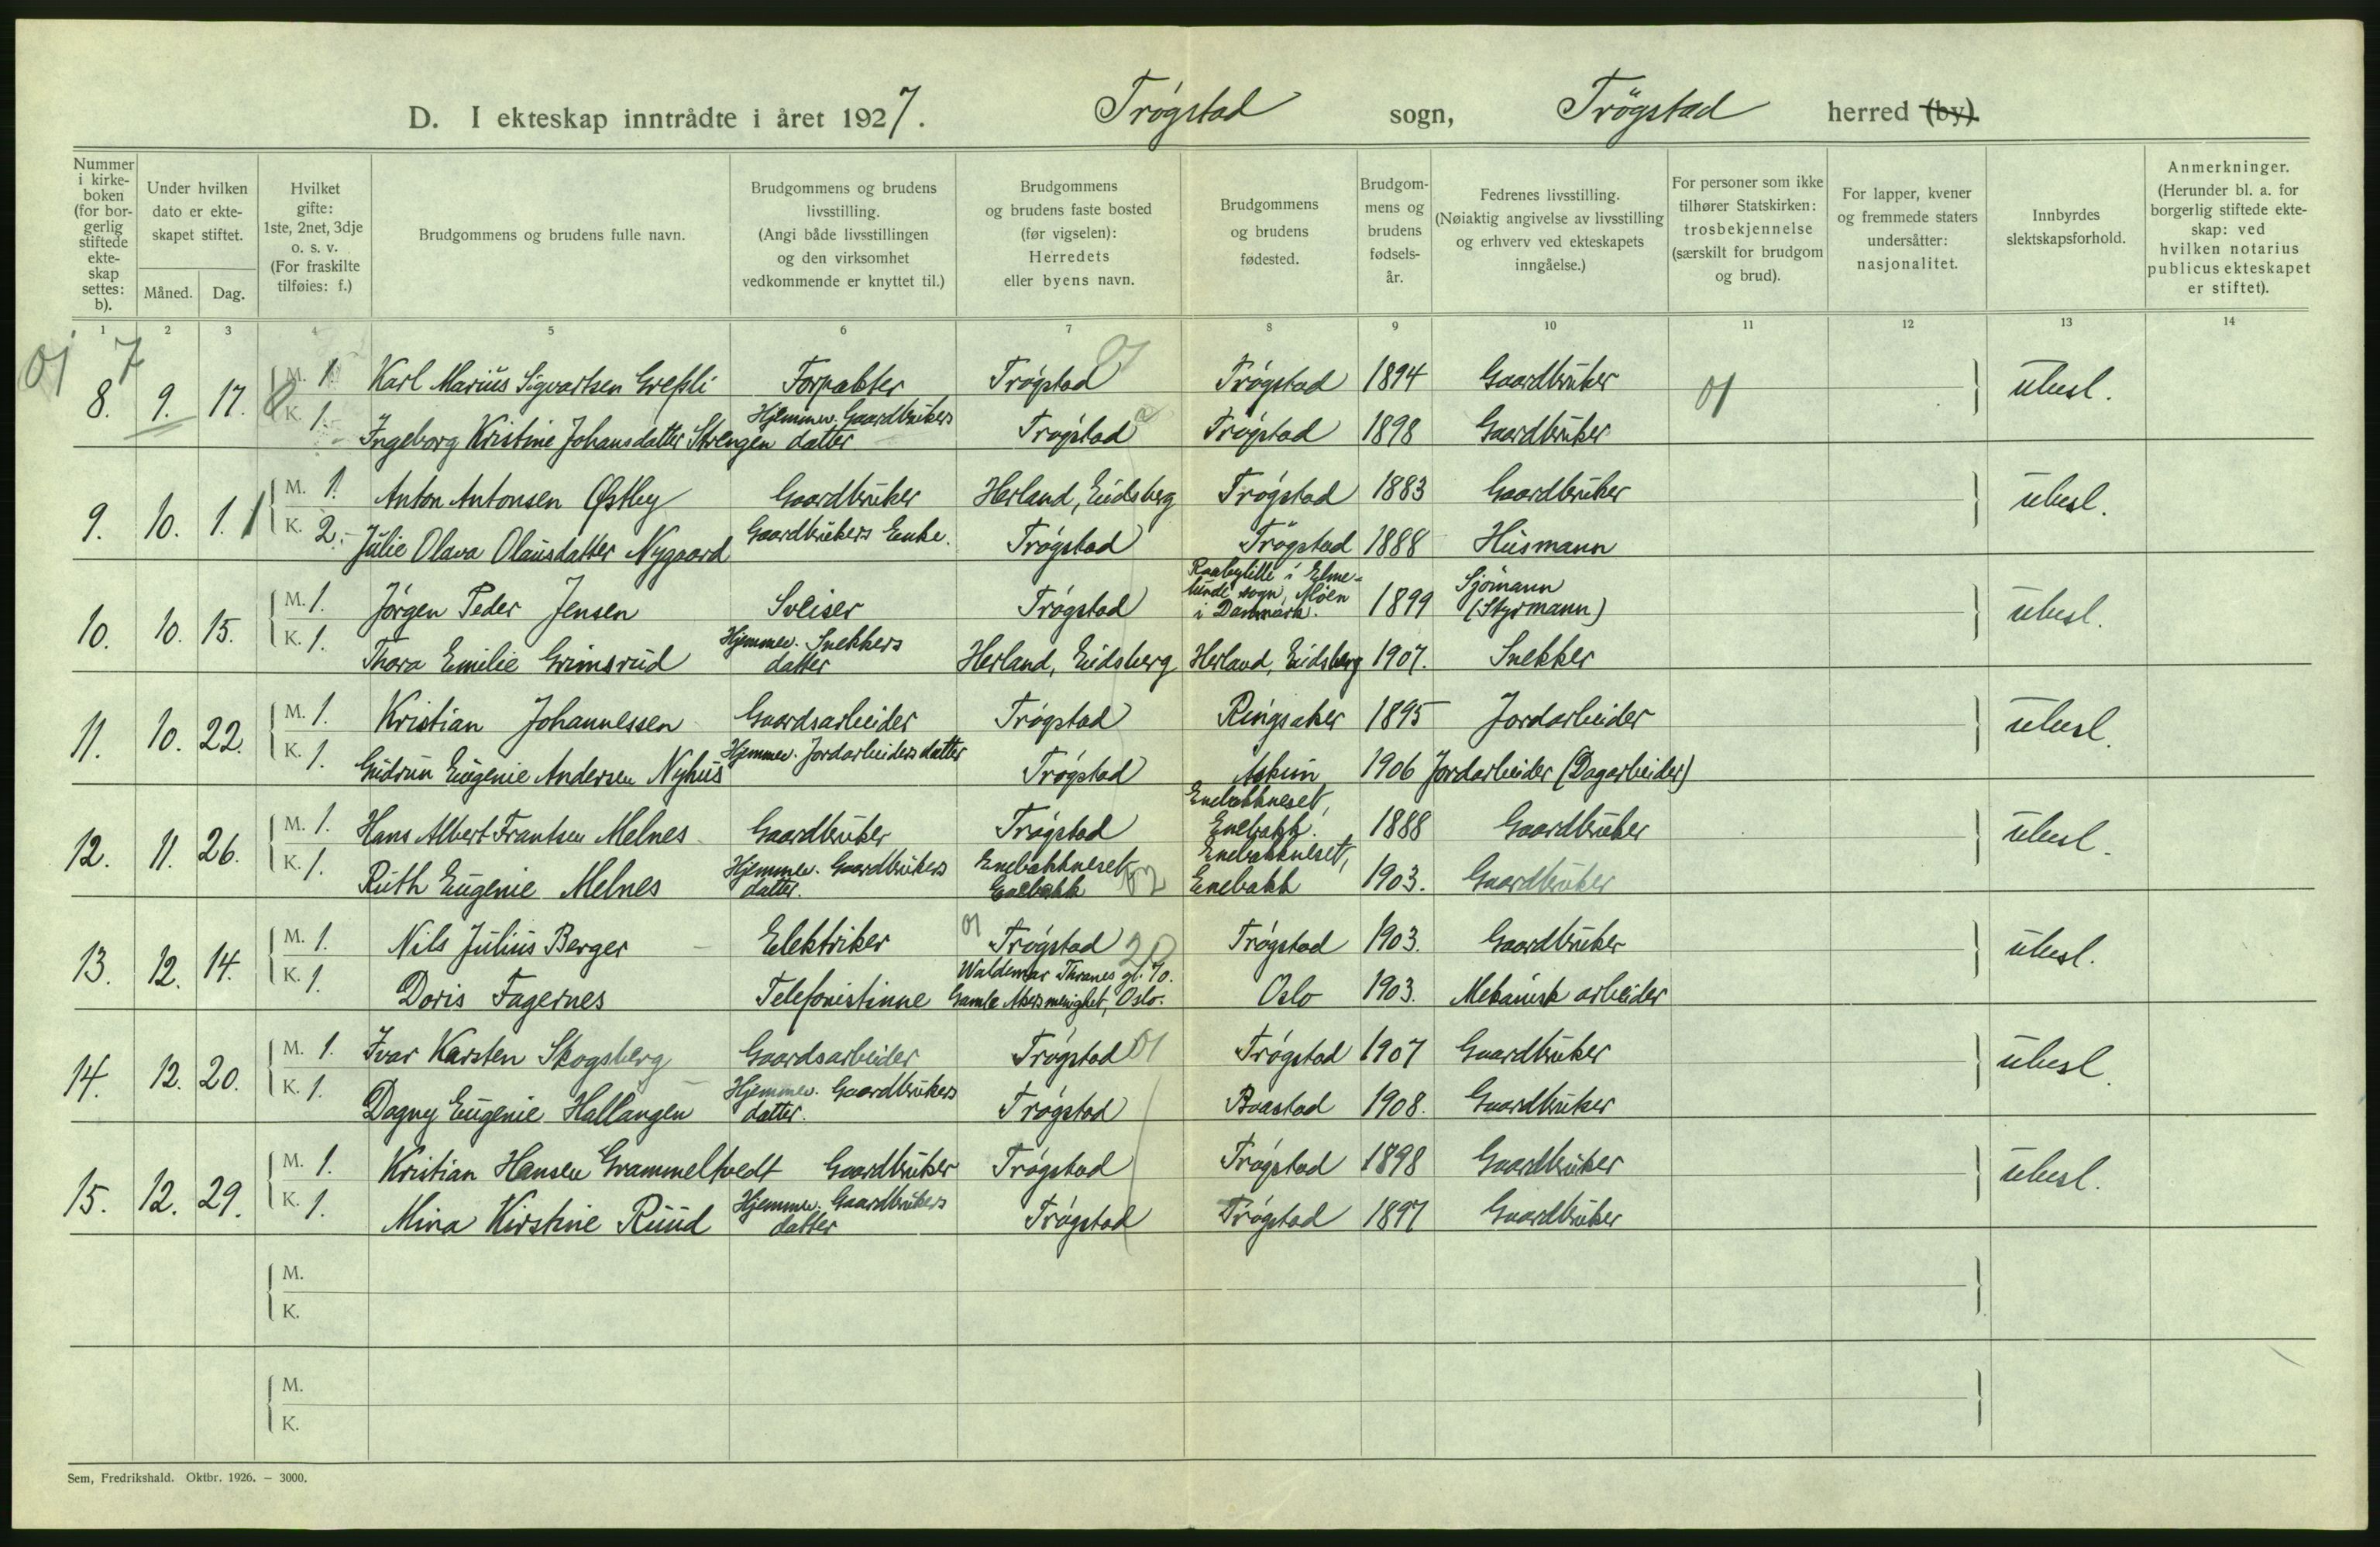 D. I ekteskap inntrådte i året 1927. Trøgstad sogn, Trøgstad herred (by).
Nummer i kirke-boken (for bor-gerlig stiftede ekte-skap settes: b).
Under hvilken dato er ekte-skapet stiftet.
Måned. Dag.
Hvilket gifte: 1ste, 2net, 3dje o. s. v. (For fraskilte tilføies: f.)
Brudgommens og brudens fulle navn.
Brudgommens og brudens livsstilling. (Angi både livsstillingen og den virksomhet vedkommende er knyttet til.)
Brudgommens og brudens faste bosted (før vigselen): Herredets eller byens navn.
Brudgommens og brudens fødested.
Brudgom-mens og brudens fødsels-år.
Fedrenes livsstilling. (Nøiaktig angivelse av livsstilling og erhverv ved ekteskapets inngåelse.)
For personer som ikke tilhører Statskirken: trosbekjennelse (særskilt for brudgom og brud).
For lapper, kvener og fremmede staters undersåtter: nasjonalitet.
Innbyrdes slektskapsforhold.
Anmerkninger. (Herunder bl. a. for borgerlig stiftede ekte-skap: ved hvilken notarius publicus ekteskapet er stiftet).
1 2 3 4 5 6 7 8 9 10 11 12 13 14
01 7
8. 9. 17. M. 1 Karl Marius Sigvartsen Grefsli Forpakter Trøgstad Trøgstad 1894 Gaardbruker 01 ubesl.
K. 1. Ingeborg Kristine Johansdatter Strengen Hjemmev. Gaardbrukers datter Trøgstad Trøgstad 1898 Gaardbruker
9. 10. 1. M. 1. Anton Antonsen Østby Gaardbruker Herland, Eidsberg Trøgstad 1883 Gaardbruker ubesl.
K. 2. Julie Olava Olausdatter Nygaard Gaardbrukers Enke. Trøgstad Trøgstad 1888 Husmann
10. 10. 15. M. 1. Jørgen Peder Jensen Sveiser Trøgstad Raabylille i Elme-lunde sogn, Møen i Danmark. 1899 Sjømann (Styrmann) ubesl.
K. 1. Thora Emilie Grimsrud Hjemmev. Snekkers datter Herland, Eidsberg Herland, Eidsberg 1907. Snekker
11. 10. 22. M. 1. Kristian Johannessen Gaardsarbeider Trøgstad Ringsaker 1895 Jordarbeider ubesl.
K. 1. Gudrun Eugenie Andersen Nyhus Hjemmev. Jordarbeiders datter Trøgstad Askim 1906 Jordarbeider (Dagarbeider)
12. 11. 26. M. 1. Hans Albert Frantsen Melnes Gaardbruker Trøgstad Enebakkneset, Enebakk. 1888 Gaardbruker ubesl.
K. 1. Ruth Eugenie Melnes Hjemmev. Gaardbrukers datter. Enebakkneset Enebakk Enebakkneset, Enebakk 1903. Gaardbruker
13. 12. 14. M. 1. Nils Julius Berger Elektriker 01 Trøgstad 20 Trøgstad 1903. Gaardbruker ubesl.
K. 1. Doris Fagernes Telefonistinne Waldemar Thranes gt. 70. Gamle Akers menighet, Oslo. Oslo 1903. Mekanisk arbeider
14. 12. 20. M. 1. Ivar Karsten Skogsberg Gaardsarbeider Trøgstad 01 Trøgstad 1907 Gaardbruker ubesl.
K. 1. Dagny Eugenie Hallangen Hjemmev. Gaardbrukers datter. Trøgstad Baastad 1908. Gaardbruker
15. 12. 29. M. 1. Kristian Hansen Grammeltvedt Gaardbruker Trøgstad Trøgstad 1898 Gaardbruker ubesl.
K. 1. Mina Kirstine Ruud Hjemmev. Gaardbrukers datter Trøgstad Trøgstad 1897 Gaardbruker
M.
K.
M.
K.
Sem, Fredrikshald. Oktbr. 1926. – 3000.